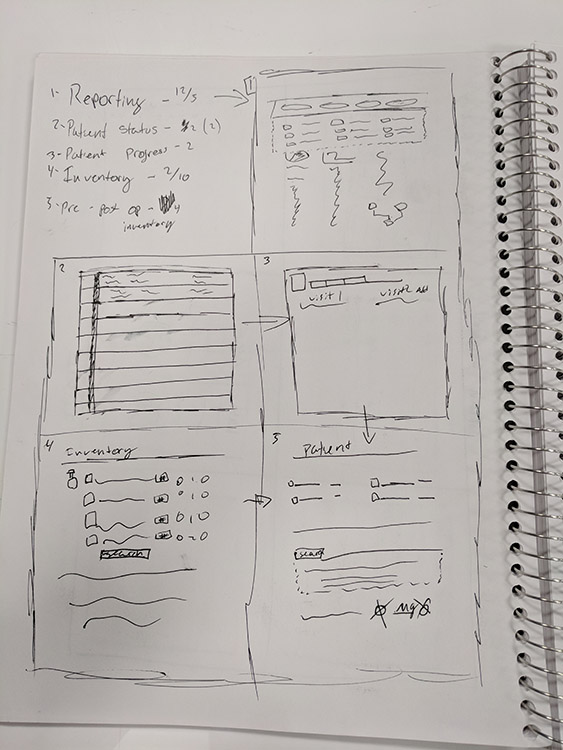 1- Reporting - 12/5
2- Patient status - 2 (2)
3- Patient Progress - 2
4- Inventory - 2/10
5- Pre - post op - 4
inventory
1
2
3
visit 1 visit 2
4
Inventory
search
5
Patient
search
mg